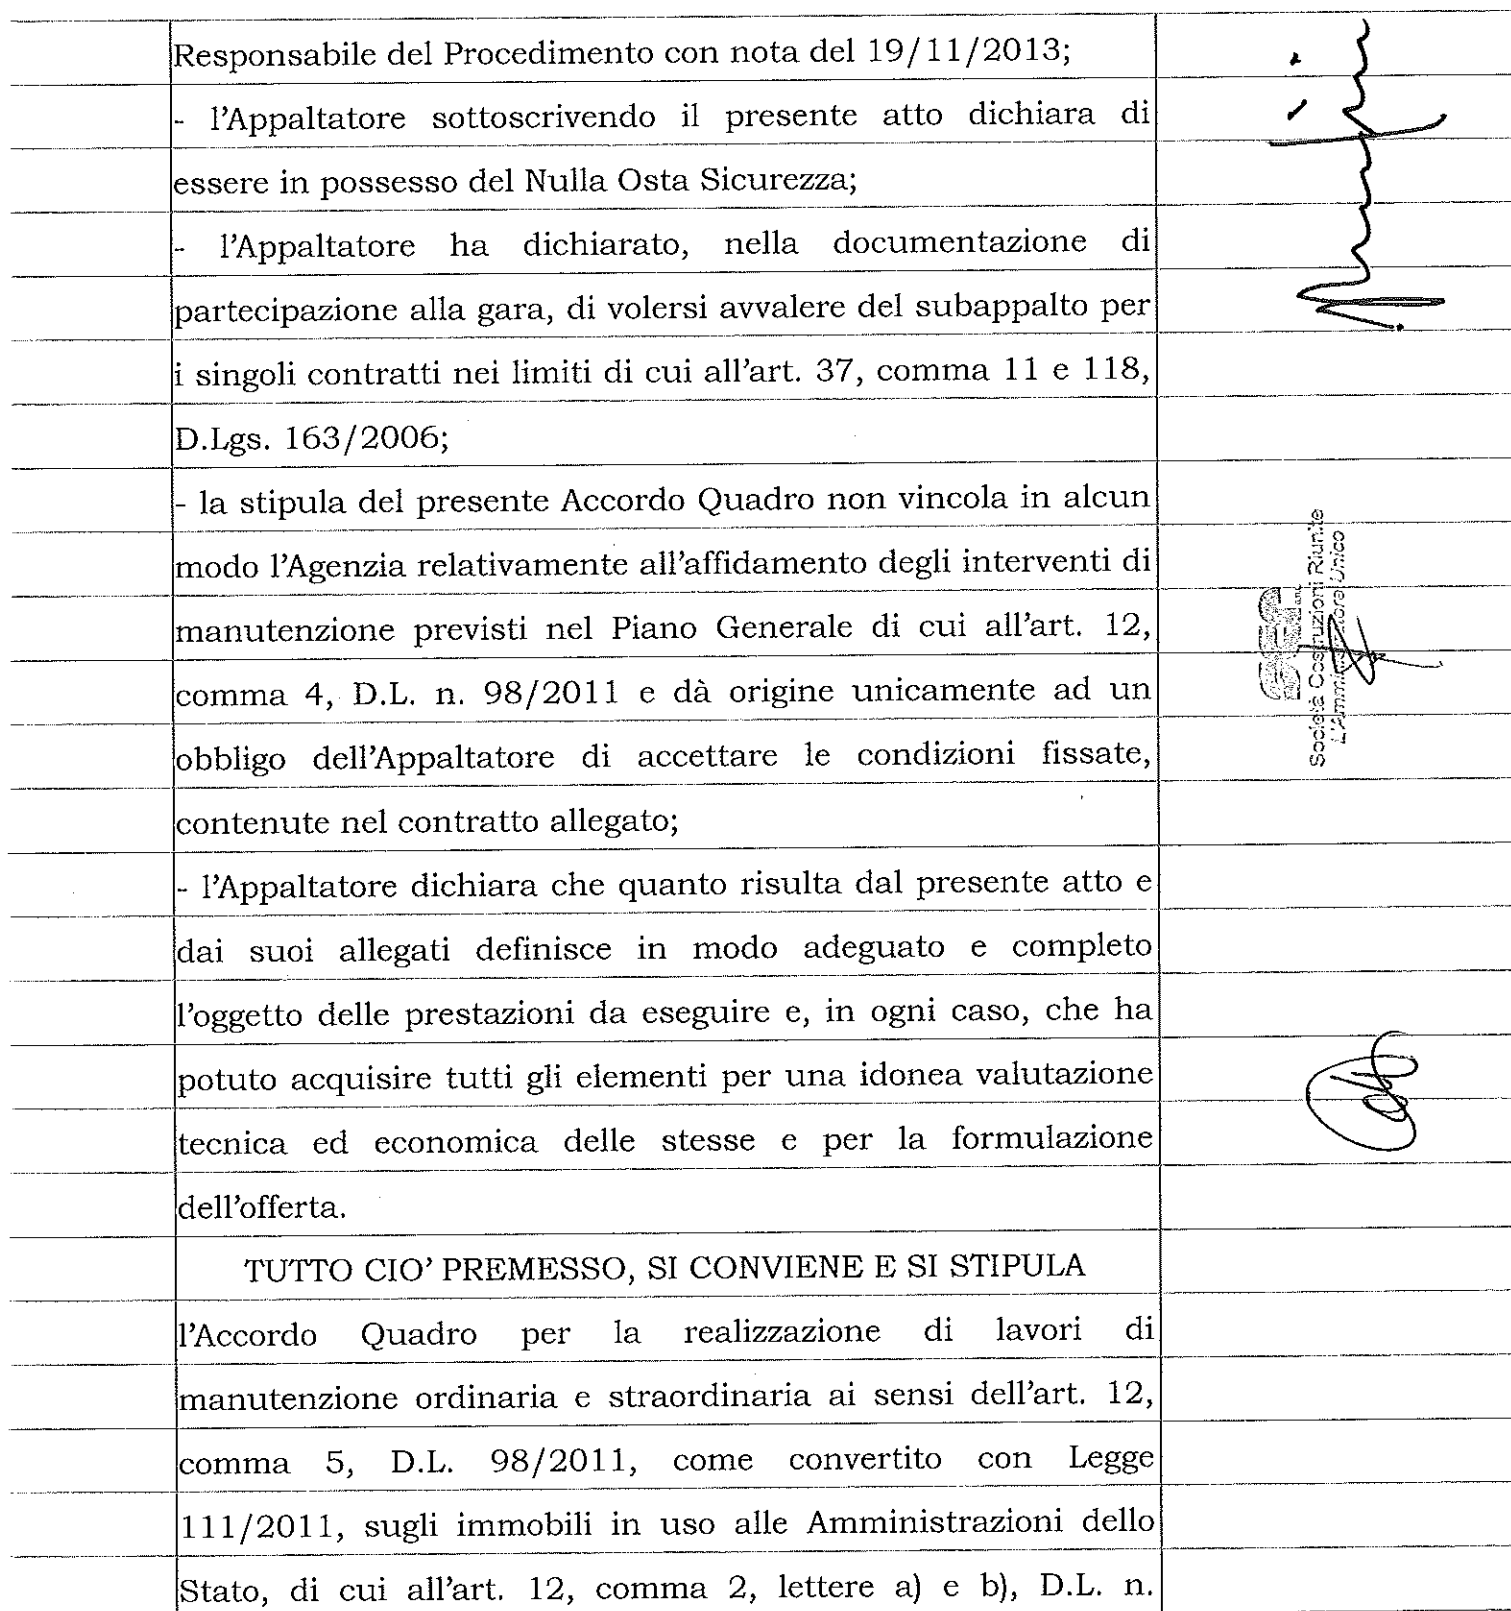 Responsabile del Procedimento con nota del 19/11/2013;
- l'Appaltatore sottoscrivendo il presente atto dichiara di
essere in possesso del Nulla Osta Sicurezza;
- l'Appaltatore ha dichiarato, nella documentazione di
partecipazione alla gara, di volersi avvalere del subappalto per
i singoli contratti nei limiti di cui all'art. 37, comma 11 e 118,
D.Lgs. 163/2006;
- la stipula del presente Accordo Quadro non vincola in alcun
modo l'Agenzia relativamente all'affidamento degli interventi di
manutenzione previsti nel Piano Generale di cui all'art. 12,
comma 4, D.L. n. 98/2011 e dà origine unicamente ad un
obbligo dell'Appaltatore di accettare le condizioni fissate,
contenute nel contratto allegato;
- l'Appaltatore dichiara che quanto risulta dal presente atto e
dai suoi allegati definisce in modo adeguato e completo
l'oggetto delle prestazioni da eseguire e, in ogni caso, che ha
potuto acquisire tutti gli elementi per una idonea valutazione
tecnica ed economica delle stesse e per la formulazione
dell'offerta.
TUTTO CIO' PREMESSO, SI CONVIENE E SI STIPULA
l'Accordo Quadro per la realizzazione di lavori di
manutenzione ordinaria e straordinaria ai sensi dell'art. 12,
comma 5, D.L. 98/2011, come convertito con Legge
111/2011, sugli immobili in uso alle Amministrazioni dello
Stato, di cui all'art. 12, comma 2, lettere a) e b), D.L. n.
Società Costruzioni Riunite
L'Amministratore Unico